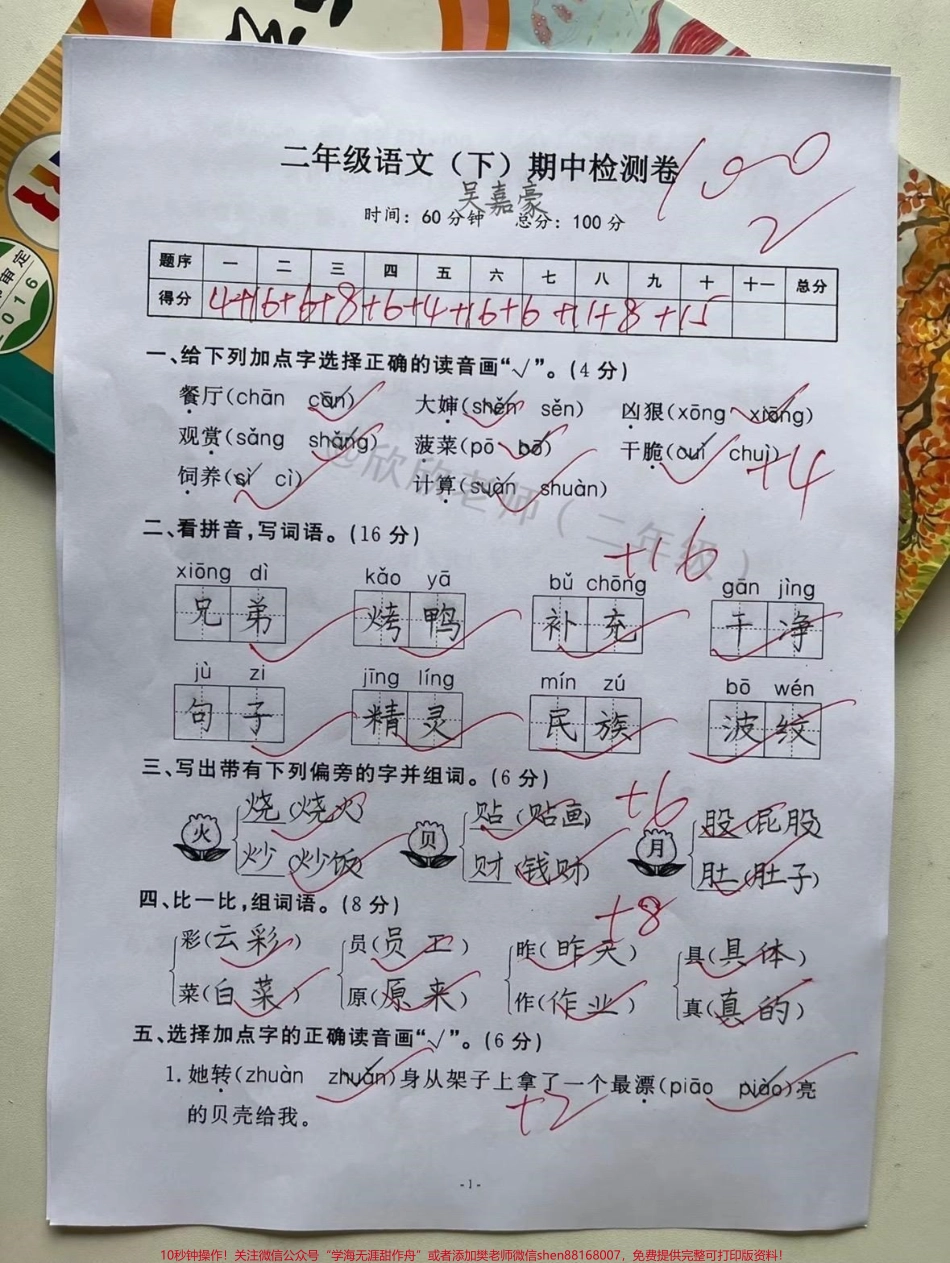 二年级语文（下）期中检测卷
100
吴嘉豪
2
时间：60分钟 总分：100分
题序 一 二 三 四 五 六 七 八 九 十 十一 总分
得分 4+16+6+8+6+4+16+6+11+8+15
一、给下列加点字选择正确的读音画“√”。(4分)
餐厅(chān cān) 大婶(shěn sěn) 凶狠(xōng xiōng)
观赏(sǎng shǎng) 菠菜(pō bō) 干脆(cuì chuì)
+4
饲养(sì cì) 计算(suàn shuàn)
@欣欣老师（二年级）
二、看拼音,写词语。(16分)
+16
xiōng dì kǎo yā bǔ chōng gān jìng
兄弟 烤鸭 补充 干净
jù zi jīng líng mín zú bō wén
句子 精灵 民族 波纹
三、写出带有下列偏旁的字并组词。(6分)
+6
烧(烧火) 贴(贴画) 股(屁股)
火 贝 月
炒(炒饭) 财(钱财) 肚(肚子)
四、比一比,组词语。(8分)
+8
彩(云彩) 员(员工) 昨(昨天) 具(具体)
菜(白菜) 原(原来) 作(作业) 真(真的)
五、选择加点字的正确读音画“√”。(6分)
1.她转(zhuàn zhuǎn)身从架子上拿了一个最漂(piāo piào)亮
的贝壳给我。
+2
-1-
10秒钟操作！关注微信公众号“学海无涯甜作舟”或者添加樊老师微信shen88168007，免费提供完整可打印版资料！